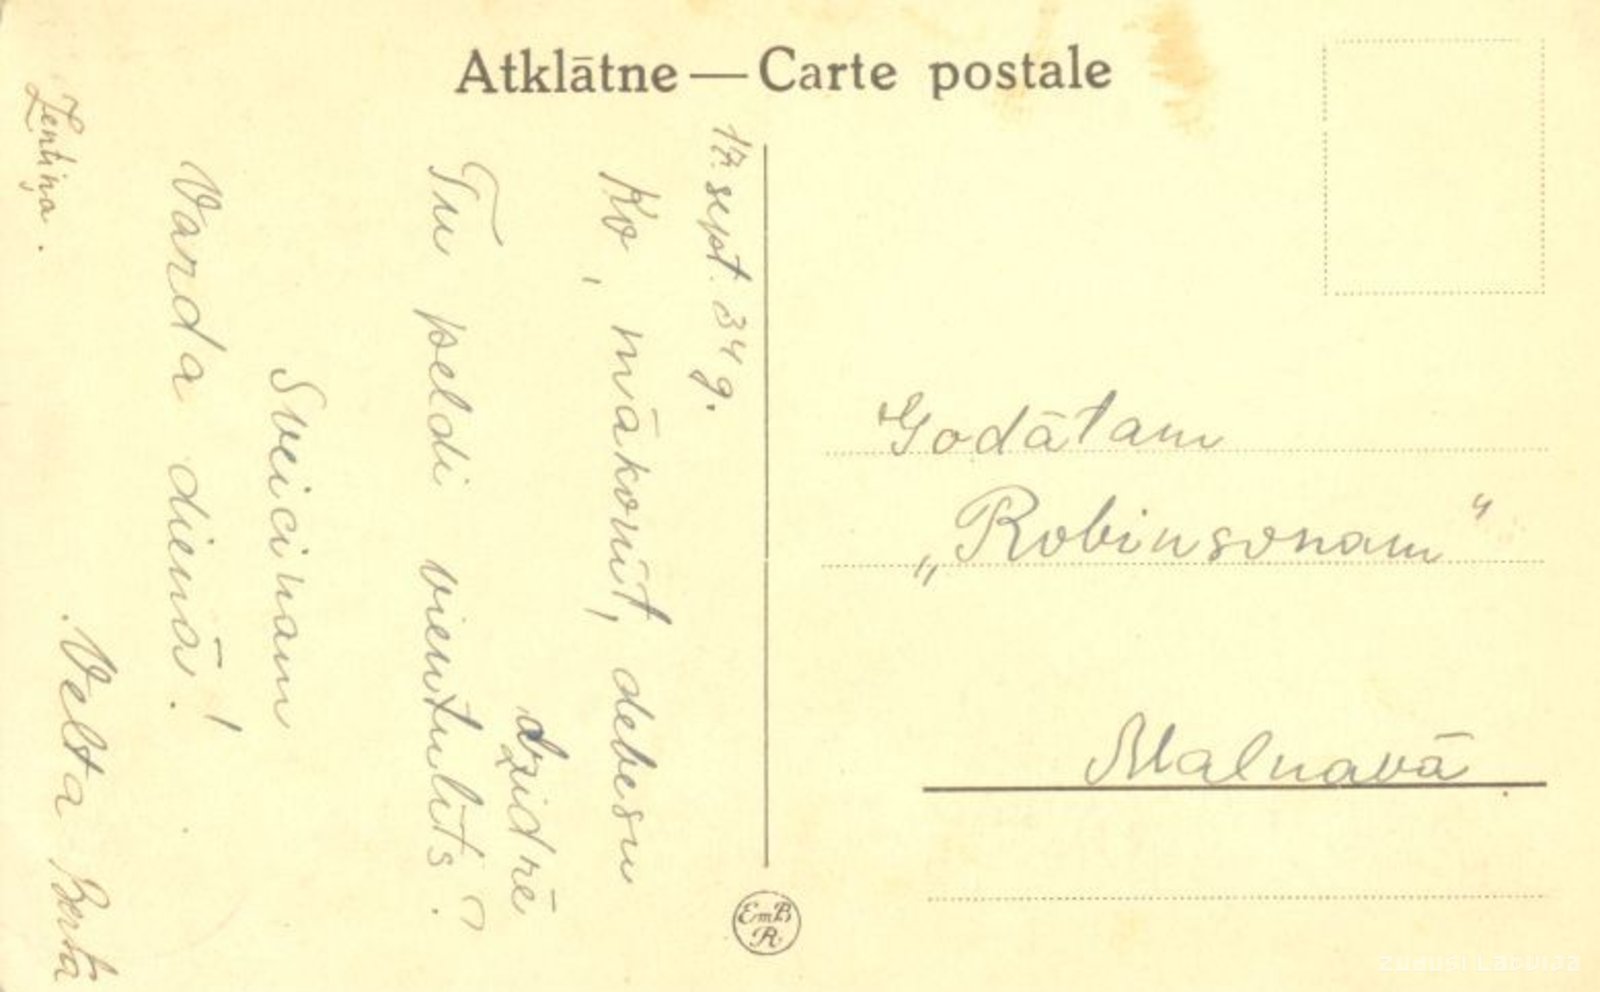 Atklātne — Carte postale
17. sept. 34 g.
Ko, mākonīt, debesu
dzidrē
Tu peldi vientulīts?
Sveicinam
Varda dienā!
Velta Berta
Zentiņa.
Godātam
„Robinsonam“
Malnavā
EmB
R.
Zudusi Latvija